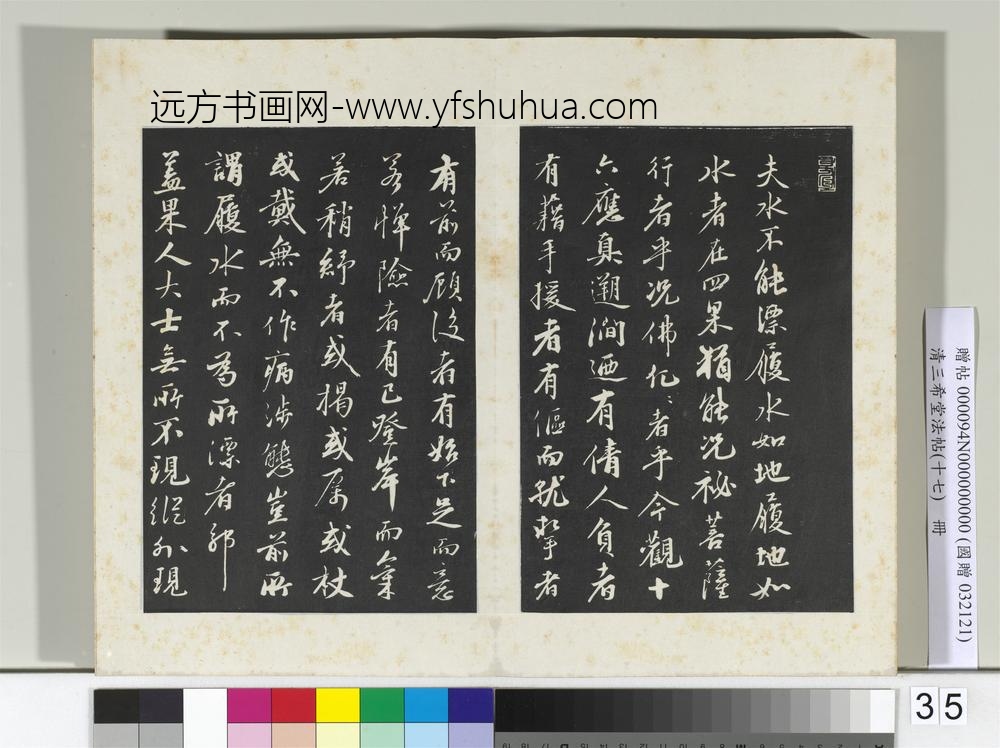 远方书画网-www.yfshuhua.com
夫水不能漂履水如地履地如
水者在四果猶能况祕菩薩
行者乎况佛化〻者乎今觀十
六應真遡澗迺有倩人負者
有藉手援者有傴而就挐者
有前而顧後者有始下足而意
若憚險者有已登岸而氣
若稍紓者或揭或厲或杖
或戴無不作病涉態豈前所
謂履水而不為所漂者耶
蓋果人大士無所不現緃外現
贈帖 000094N000000000 (國贈 032121)
清三希堂法帖(十七) 冊
35